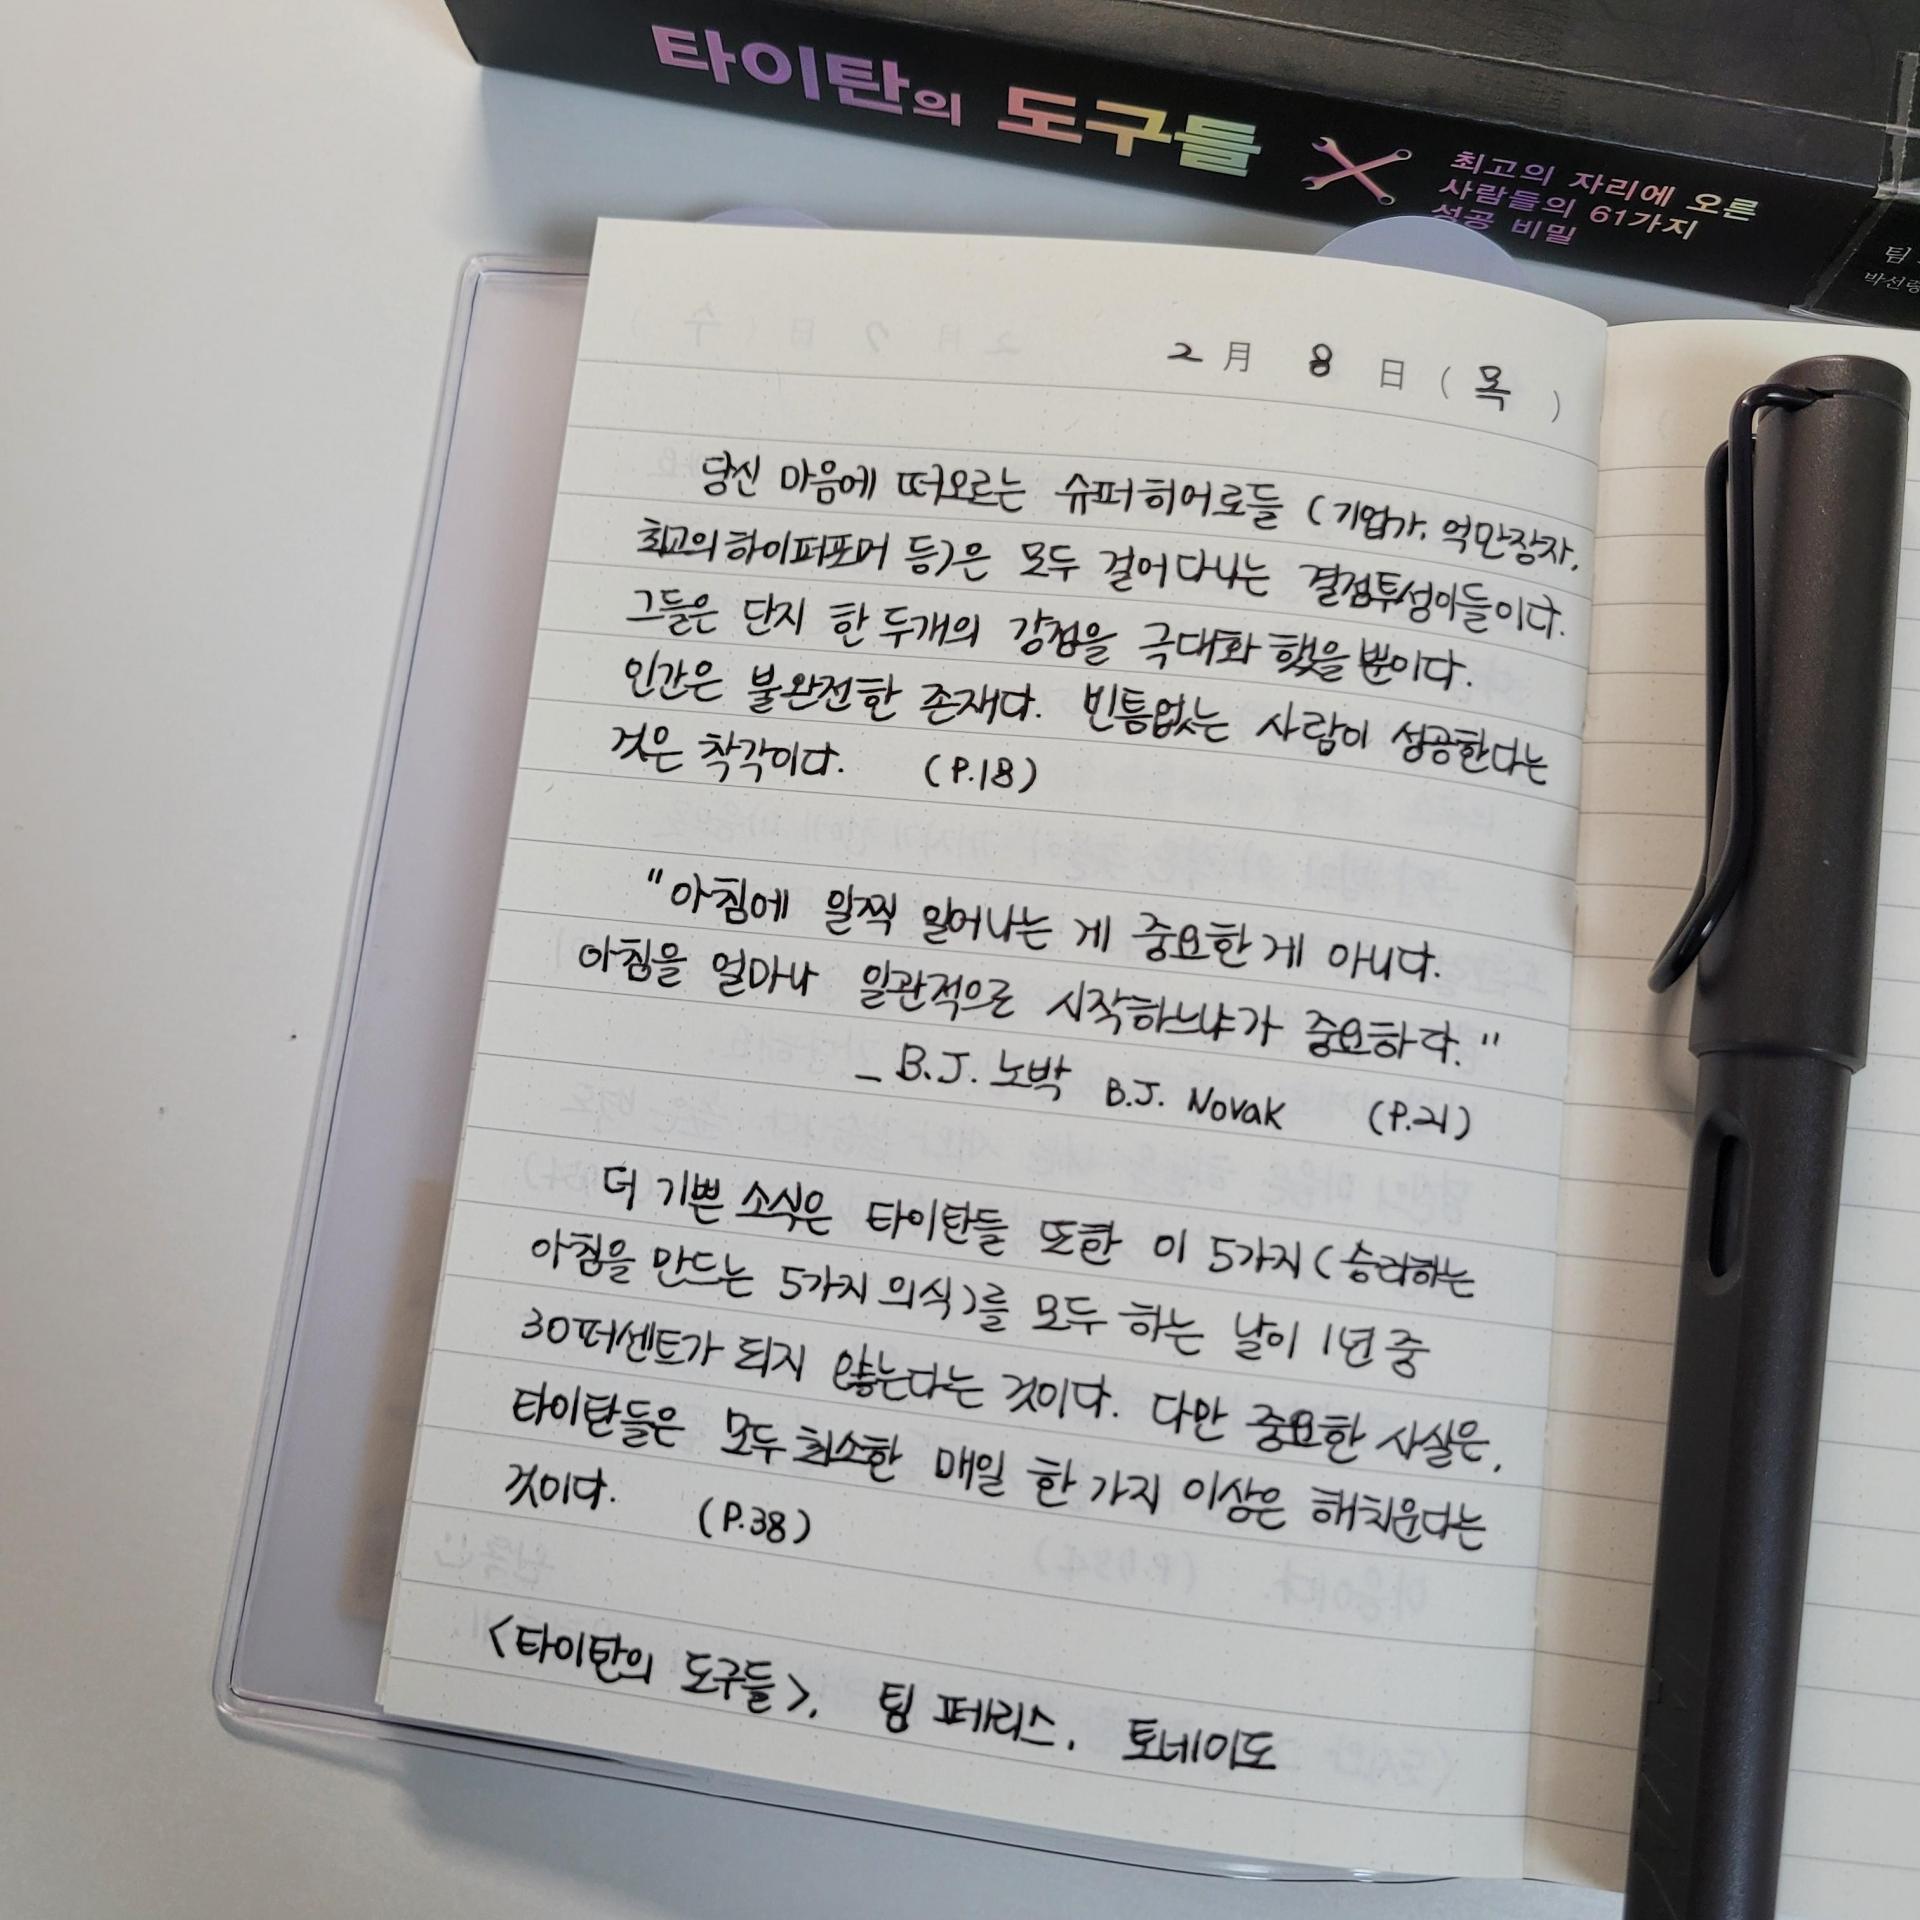 타이탄의 도구들
최고의 자리에 오른
사람들의 61가지
성공 비밀
팀
박선령
2月 8日(목)
당신 마음에 떠오르는 슈퍼히어로들 (기업가, 억만장자,
최고의 하이퍼포머 등)은 모두 걸어다니는 결점투성이들이다.
그들은 단지 한 두개의 강점을 극대화 했을 뿐이다.
인간은 불완전한 존재다. 빈틈없는 사람이 성공한다는
것은 착각이다. (P.18)
"아침에 일찍 일어나는 게 중요한 게 아니다.
아침을 얼마나 일관적으로 시작하느냐가 중요하다."
_ B.J. 노박 B.J. Novak (P.21)
더 기쁜 소식은 타이탄들 또한 이 5가지(승리하는
아침을 만드는 5가지 의식)를 모두 하는 날이 1년 중
30퍼센트가 되지 않는다는 것이다. 다만 중요한 사실은,
타이탄들은 모두 최소한 매일 한 가지 이상은 해치운다는
것이다. (P.38)
<타이탄의 도구들>, 팀 페리스, 토네이도